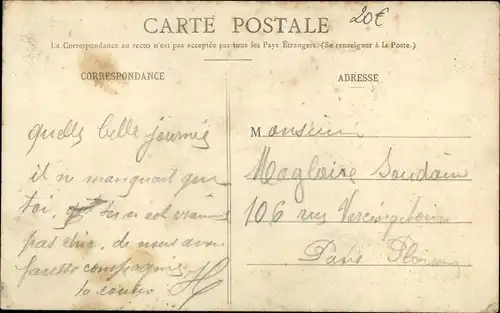 CARTE POSTALE
20€
La Correspondance au recto n'est pas acceptée par tous les Pays Étrangers. (Se renseigner à la Poste.)
CORRESPONDANCE
ADRESSE
quelle belle journée
il ne manquait que
toi, tu n'est vraiment
pas chic, de nous avoir
fausse compagnie
H
Monsieur
Magloire Soudain
106 rue Vercingétorix
Paris